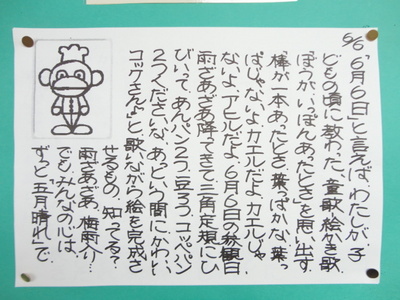 6/6
「6月6日」と言えば、わたしが、子
どもの頃に教わった、童歌・絵かき歌
『ぼうがいっぽんあったとさ』を思い出す。
「棒が一本あったとさ、葉っぱかな、葉っ
ぱじゃないよカエルだよ、カエルじゃ
ないよ、アヒルだよ、6月6日の参観日
雨ざあざあ降ってきて三角定規にひ
びいって、あんパン2つ、豆3つ、コッペパン
2つくださいな、あっという間にかわいい
コックさん♪」と歌いながら絵を完成さ
せるもの。知ってる?
雨ざあざあ、梅雨入り…
でも、みんなの心は、
ずっと「五月晴れ」で。